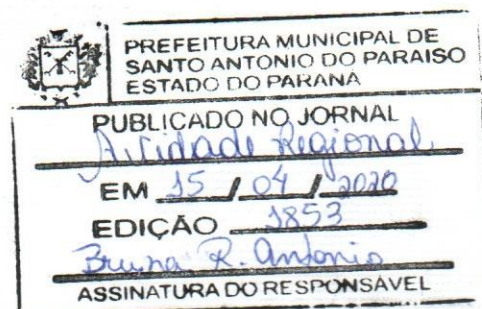 PREFEITURA MUNICIPAL DE
SANTO ANTONIO DO PARAISO
ESTADO DO PARANÁ
PUBLICADO NO JORNAL
A Cidade Regional
EM 15 / 04 / 2020
EDIÇÃO 1853
Bruna R. Antonio
ASSINATURA DO RESPONSÁVEL